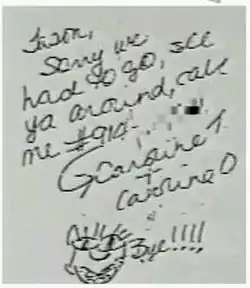 Jason,
Sorry we
had to go, see
ya around, call
me #914-
Caroline 1
+
Caroline O
Bye!!!!